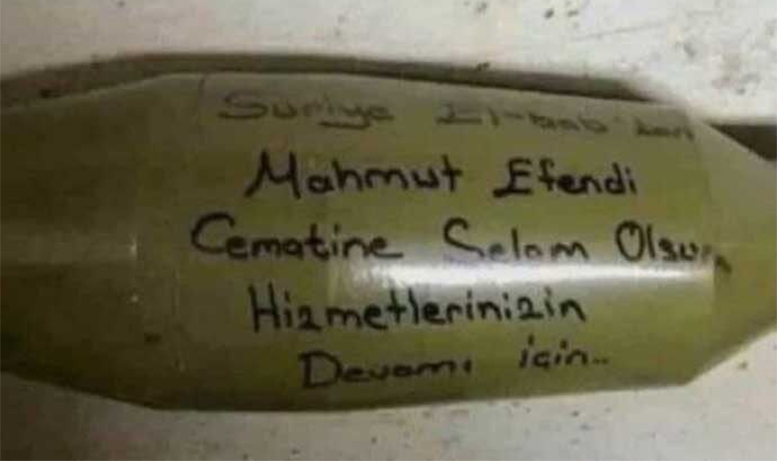 Suriye El-bab'dan
Mahmut Efendi
Cematine Selam Olsun
Hizmetlerinizin
Devamı için..